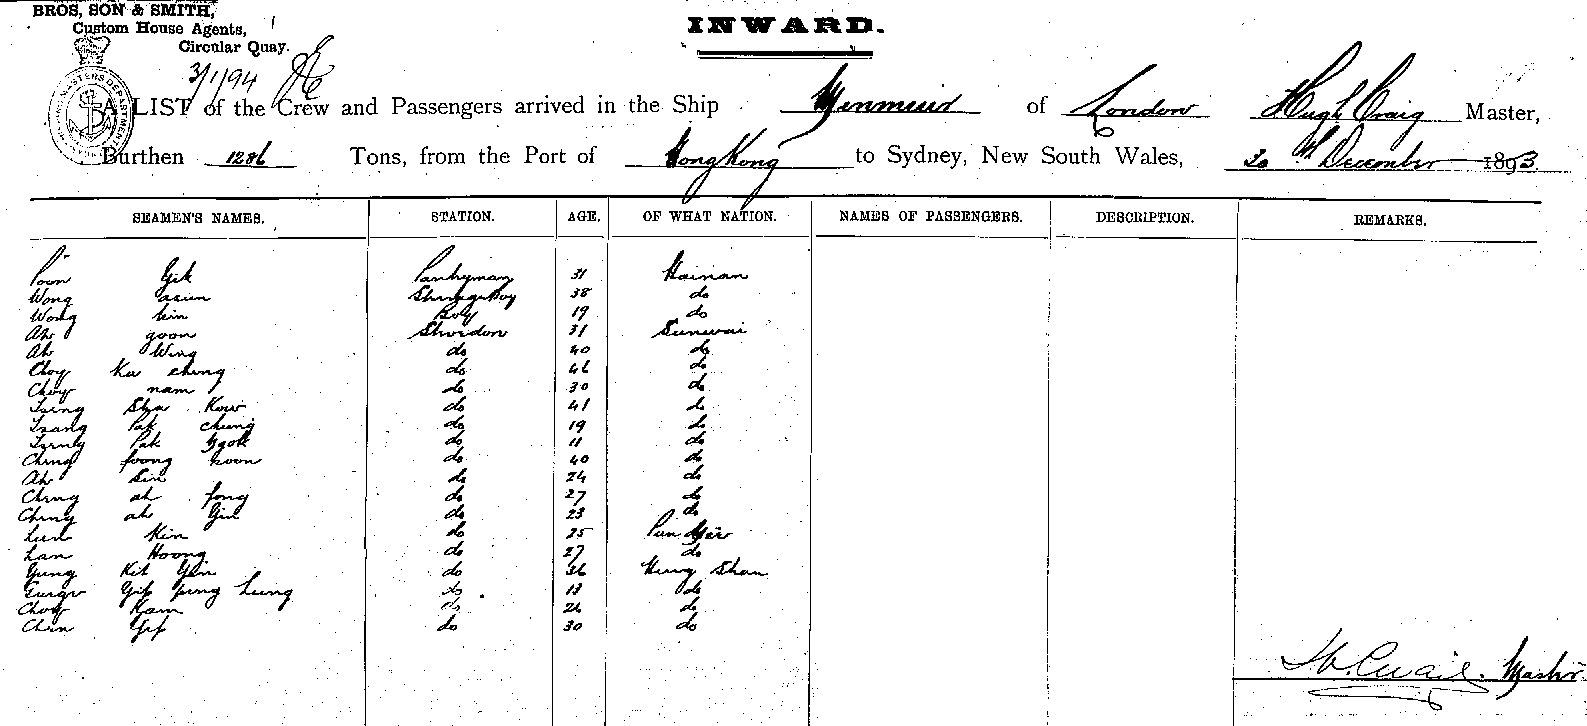 BROS, SON & SMITH,
Custom House Agents,
Circular Quay.
3/1/94
INWARD.
A LIST of the Crew and Passengers arrived in the Ship Menmuir of London Hugh Craig Master,
Burthen 1286 Tons, from the Port of HongKong to Sydney, New South Wales, 30th December 1893
SEAMEN'S NAMES. STATION. AGE. OF WHAT NATION. NAMES OF PASSENGERS. DESCRIPTION. REMARKS.
Poon Yik Pantryman 31 Hainan
Wong 38 do
Wong kin Boy 19 do
Ah goon 31 Sunwai
Ah Wing do 40 do
Choy Ku do 46 do
Choy nam do 30 do
Sha Kow do 41 do
Tsang Pak chung do 19 do
Pak do 11 do
Ching foong koon do 40 do
Ah Sin do 24 do
Ching ah fong do 27 do
Ching ah do 23 do
Kin do 25 Pun
Lan Hoong do 27 do
Yung Kit Yin do 36 Hung Shan
Yip Lung do 13 do
Choy Kam do 26 do
Chin Yip do 30 do
Master